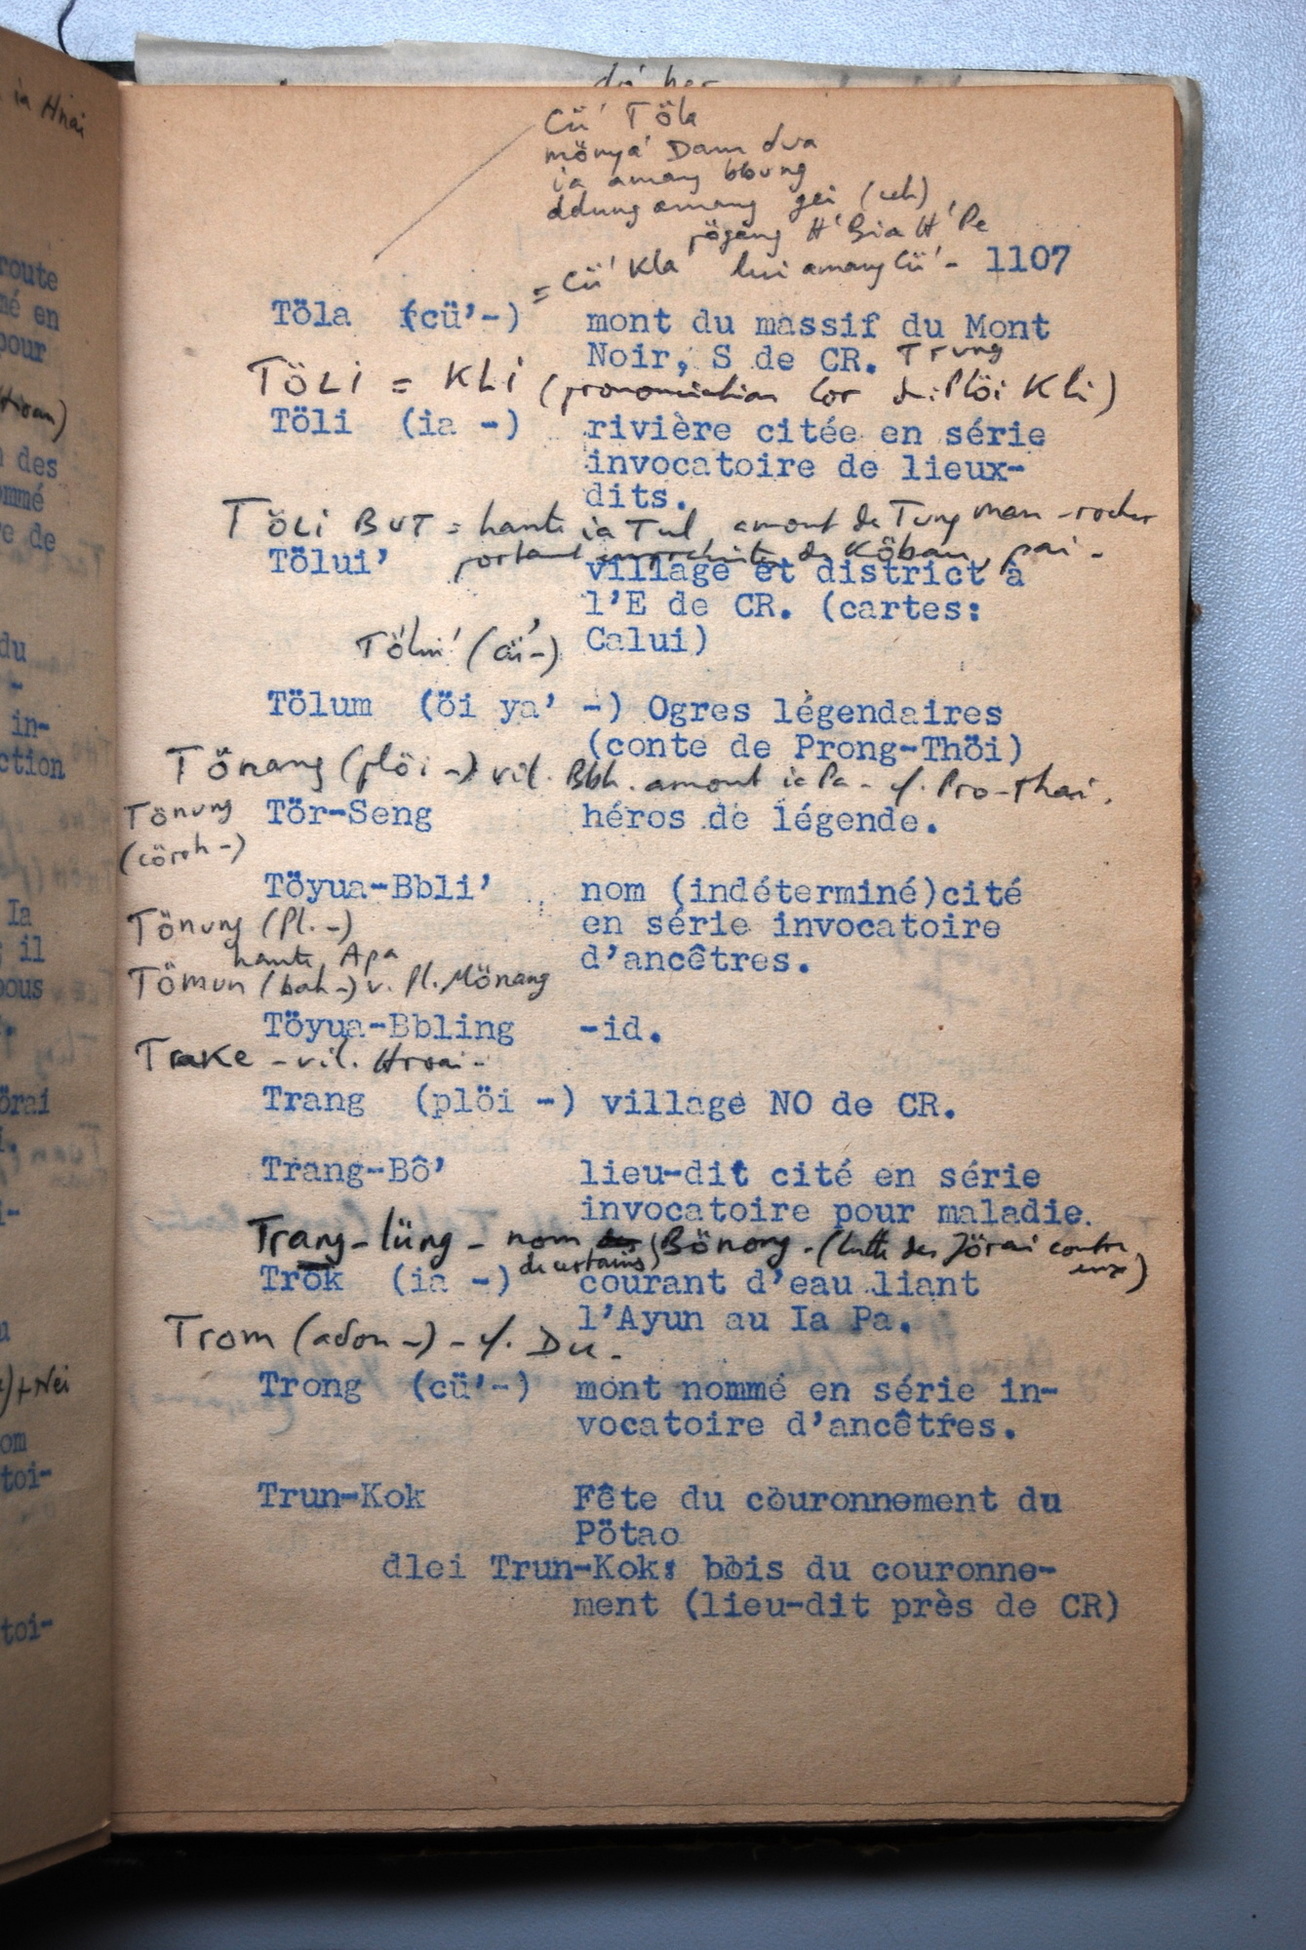 Cü' Töla
mönya' Dam dva
ia amang bbung
ddung amang gei (ceh),
jögang H'Bia H'Pe
= Cü' Kla' lui amang Cü' -
1107
Töla (cü'-) mont du massif du Mont
Noir, S de CR. Trung
TöLi = KLi (prononciation lor de Plöi Kli)
Töli (ia -) rivière citée en série
invocatoire de lieux-
dits.
TöLi BUT = haute ia Tul, amont de Tung man - rocher
portant empreinte de Köban, pai -
Tölui' village et district à
l'E de CR. (cartes:
Calui)
Tölui' (cü'-)
Tölum (öi ya' -) Ogres légendaires
(conte de Prong-Thöi)
Tönang (plöi -) vil. Bbh. amont ia Pa - cf. Pro-thai.
Tönung
(cöroh -)
Tör-Seng héros de légende.
Töyua-Bbli' nom (indéterminé)cité
en série invocatoire
d'ancêtres.
Tönung (Pl. -)
haute Apa
Tömun (bah -) v. Pl. Mönang
Töyua-Bbling -id.
Trake - vil. Hroai -
Trang (plöi -) village NO de CR.
Trang-Bô' lieu-dit cité en série
invocatoire pour maladie.
Trang-lüng - nom de certains Bönong - (lutte des Jörai contre
eux)
Trok (ia -) courant d'eau liant
l'Ayun au Ia Pa.
Trom (adon -) - cf. Du -
Trong (cü'-) mont nommé en série in-
vocatoire d'ancêtres.
Trun-Kok Fête du couronnement du
Pötao
dlei Trun-Kok: bois du couronne-
ment (lieu-dit près de CR)